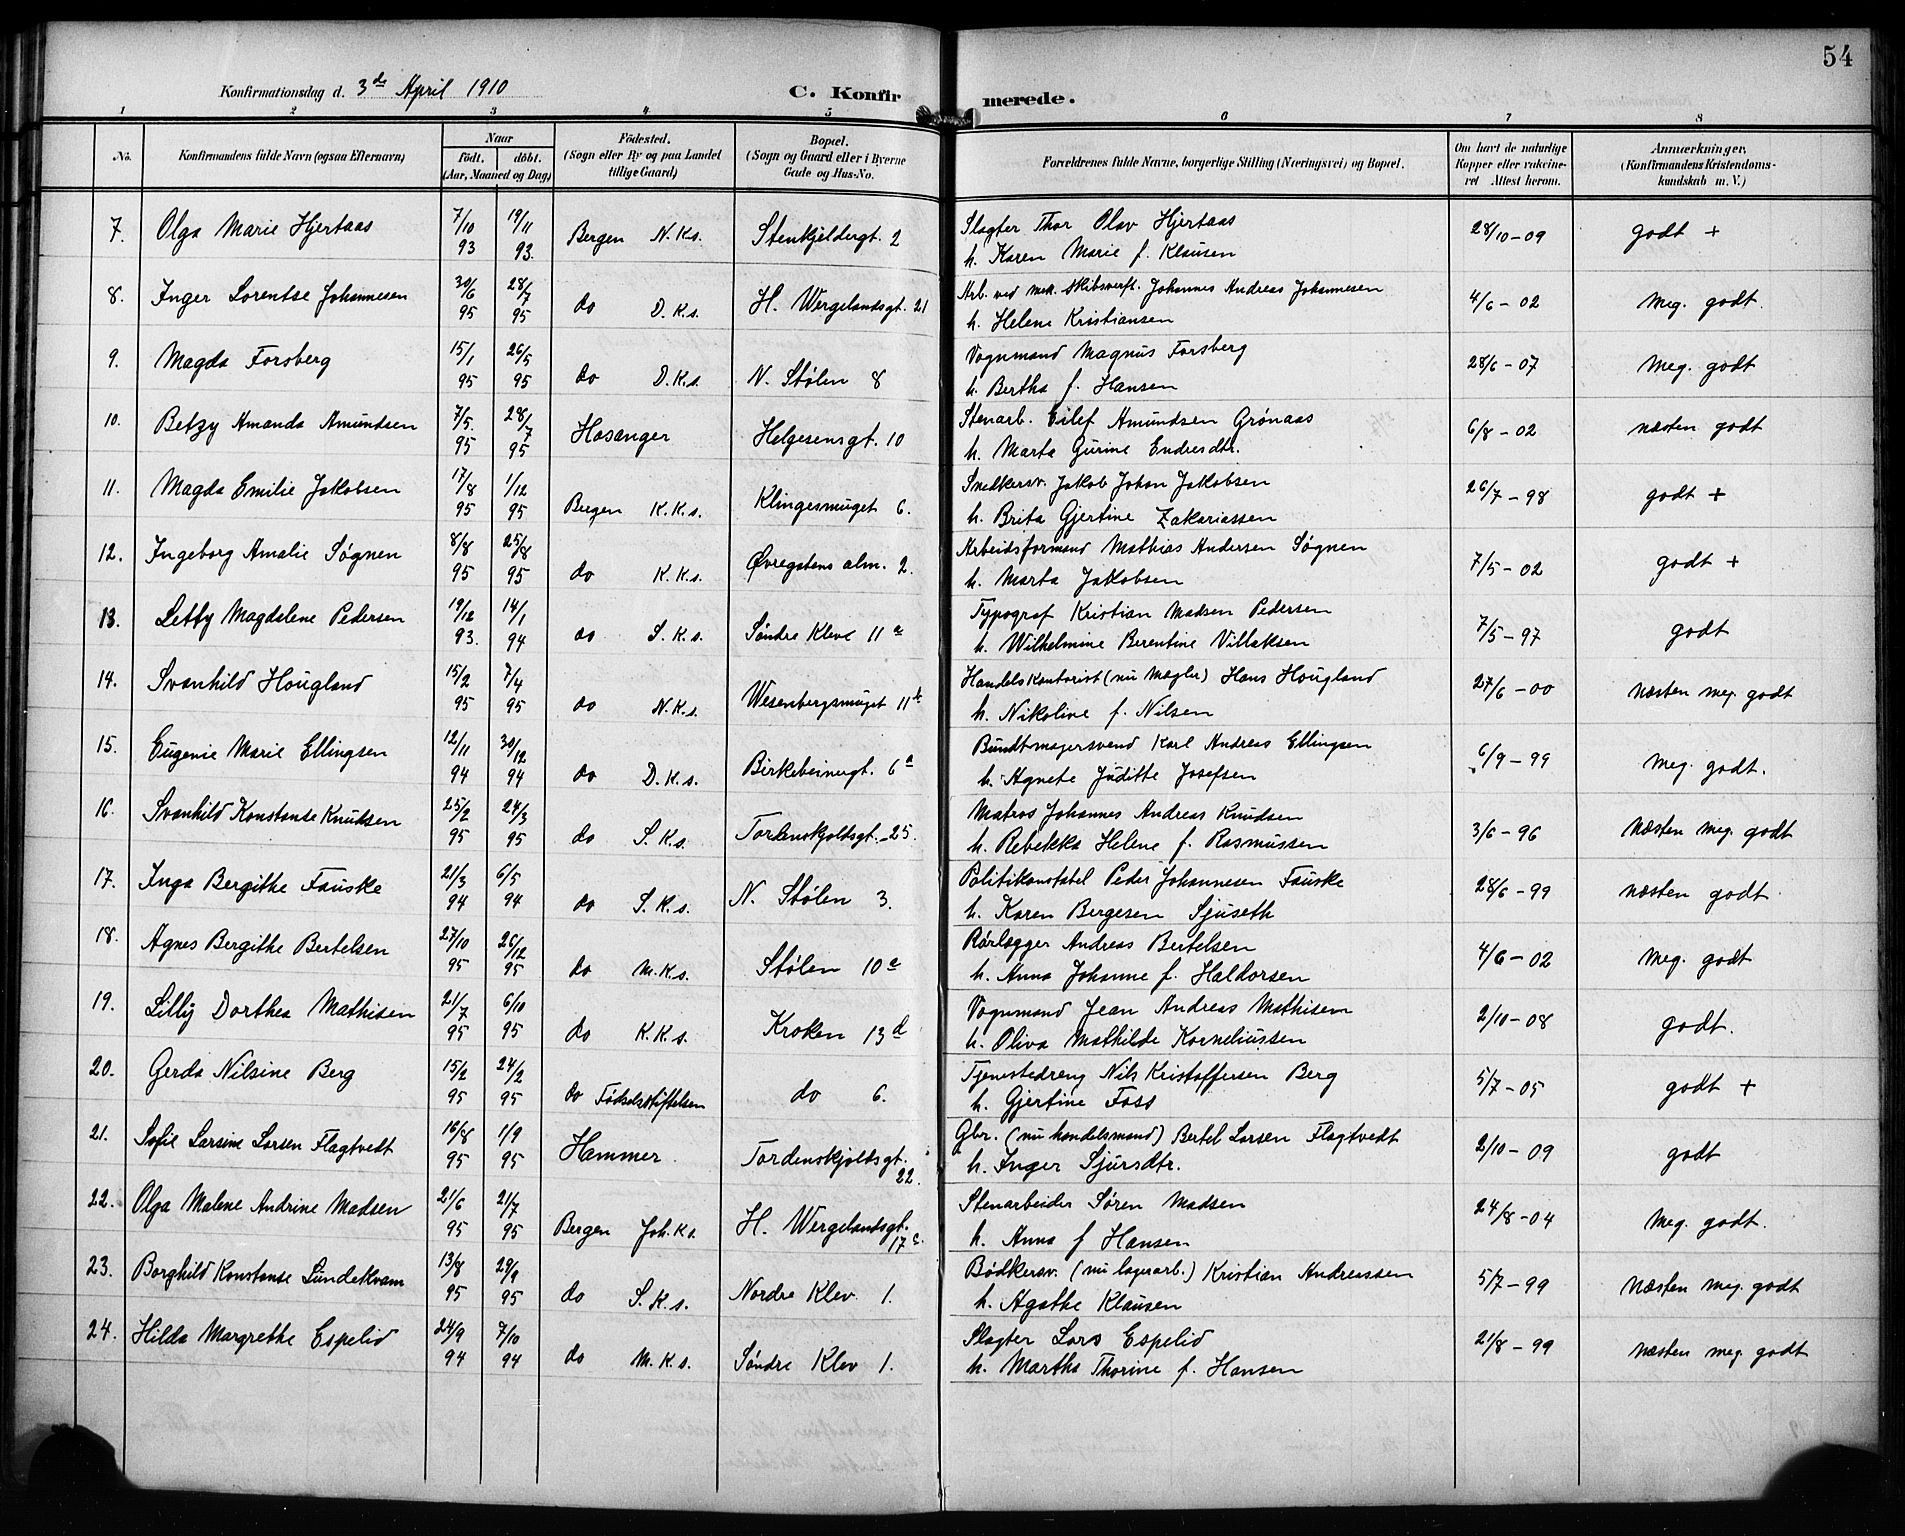 54
Konfirmationsdag d. 3de April 1910
C. Konfirmerede.
1 2 3 4 5 6 7 8
No. Konfirmandens fulde Navn (ogsaa Efternavn) Naar födt. döbt. (Aar, Maaned og Dag) Födested. (Sogn eller By og paa Landet tillige Gaard) Bopæl. (Sogn og Gaard eller i Byerne Gade og Hus-No. Forældrenes fulde Navne, borgerlige Stilling (Næringsvei) og Bopæl. Om havt de naturlige Kopper eller vakcineret Attest herom. Anmærkninger, (Konfirmandens Kristendomskundskab m. V.)
7. Olga Marie Hjertaas 7/10 93 19/11 93. Bergen N.K.s. Stenkjeldergt. 2 Slagter Thor Olav Hjertaas 28/10-09 godt +
h. Karen Marie f. Klausen
8. Inger Lorentse Johannesen 30/6 95 28/7 95 do D.K.s. H. Wergelandsgt. 21 Arb. ved mek. Skibsverft. Johannes Andreas Johannesen 4/6-02 Meg. godt.
h. Helene Kristiansen
9. Magda Forsberg 15/1 95 26/5 95 do D.K.s. N. Stølen 8 Vognmand Magnus Forsberg 28/6-07 Meg. godt
h. Bertha f. Hansen
10. Betzy Amanda Amundsen 7/5. 95 28/7 95 Hosanger Helgesensgt. 10 Stenarb. Eilef Amundsen Grønaas 6/8-02 næsten godt
h. Marta Gurine Endresdtr.
11. Magda Emilie Jakobsen 17/8 95 1/12 95 Bergen K.K.s. Klingesmuget 6. Snedkersv. Jakob Johan Jakobsen 26/7-98 godt +
h. Brita Gjertine Zakariassen
12. Ingeborg Amalie Søgnen 8/8 95 25/8 95 do K.K.s. Øvregatens alm. 2. Arbeidsformand Mathias Andersen Søgnen 7/5-02 godt +
h. Marta Jakobsen
13. Letty Magdalene Pedersen 19/12 93. 14/1 94 do S.K.s. Søndre Kleve 11 a Typograf Kristian Madsen Pedersen 7/5-97 godt
h. Wilhelmine Berentine Villaksen
14. Svanhild Hougland 15/2 95 7/4 95 do N.K.s. Wesenbergsmuget 11 b Handelskontorist (nu Mægler) Hans Hougland 27/6-00 Næsten meg. godt
h. Nikoline f. Nilsen
15. Eugenie Marie Ellingsen 12/11 94 30/12 94 do D.K.s. Birkebeinergt. 6 a Bundtmagersvend Karl Andreas Ellingsen 6/9-99 Meg. godt.
h. Agnete Juditte Josefsen
16. Svanhild Konstanse Knudsen 25/2 95 24/3 95 do S.K.s. Tordenskjoldsgt. 25. Matros Johannes Andreas Knudsen 3/6-96 Næsten meg. godt
h. Rebekka Helene f. Rasmussen
17. Inga Bergithe Fauske 21/3 94 6/5 94 do S.K.s. N. Stølen 3. Politikonstabel Peder Johannesen Fauske 28/6-99 næsten godt
h. Karen Bergesen Sjuseth
18. Agnes Bergithe Bertelsen 27/10 95 26/12 95 do M.K.s. Stølen 10 a Rørlægger Andreas Bertelsen 4/6-02 Meg. godt
h. Anna Johanne f. Haldorsen
19. Lilly Dorthea Mathisen 21/7 95 6/10 95 do K.K.s. Kroken 13 d Vognmand Jean Andreas Mathisen 2/10-08 godt.
h. Oliva Mathilde Korneliussen
20. Gerda Nilsine Berg 15/2 95 24/2 95 do Fødselsstiftelsen do 6. Tjenestedreng Nils Kristoffersen Berg 5/7-05 godt +
h. Gjertine Foss
21. Sofie Larsine Larsen Flagtvedt 16/8 95 1/9 95 Hammer. Tordenskjoldsgt. 22. Gbr. (nu handelsmand) Bertel Larsen Flagtvedt 2/10-09 godt
h. Inger Sjursdtr.
22. Olga Malene Andrine Madsen 21/6 95 21/7 95 Bergen Joh.K.s. H. Wergelandsgt. 17 c. Stenarbeider Søren Madsen 24/8-04 Meg. godt.
h. Anna f Hansen
23. Borghild Konstanse Lundekvam 13/8 95 29/9 95 do S.K.s. Nordre Klev 1. Bødkersv. (nu lagerarb.) Kristian Andreassen 5/7-99 Næsten meg. godt
h. Agathe Klausen
24. Hilda Margrethe Espelid 24/9 94 7/10 94 do M.K.s. Søndre Klev 1. Slagter Lars Espelid 21/8-99 Næsten meg. godt
h. Martha Thorine f. Hansen